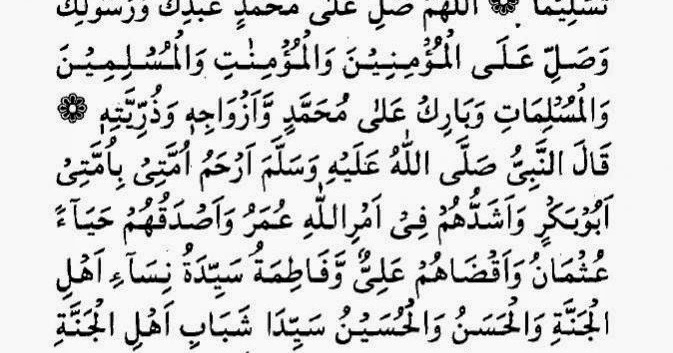 تَسْلِيْمًا ۞ اَللّٰهُمَّ صَلِّ عَلٰى مُحَمَّدٍ عَبْدِكَ وَرَسُوْلِكَ
وَصَلِّ عَلَى الْمُؤْمِنِيْنَ وَالْمُؤْمِنٰتِ وَالْمُسْلِمِيْنَ
وَالْمُسْلِمَاتِ وَبَارِكْ عَلٰى مُحَمَّدٍ وَّاَزْوَاجِهٖ وَذُرِّيَّتِهٖ ۞
قَالَ النَّبِىُّ صَلَّى اللّٰهُ عَلَيْهِ وَسَلَّمَ اَرْحَمُ اُمَّتِىْ بِاُمَّتِىْ
اَبُوْبَكْرٍ وَاَشَدُّهُمْ فِىْ اَمْرِاللّٰهِ عُمَرُ وَاَصْدَقُهُمْ حَيَآءً
عُثْمَانُ وَاَقْضَاهُمْ عَلِىٌّ وَّفَاطِمَةُ سَيِّدَةُ نِسَآءِ اَهْلِ
الْجَنَّةِ وَالْحَسَنُ وَالْحُسَيْنُ سَيِّدَا شَبَابِ اَهْلِ الْجَنَّةِ